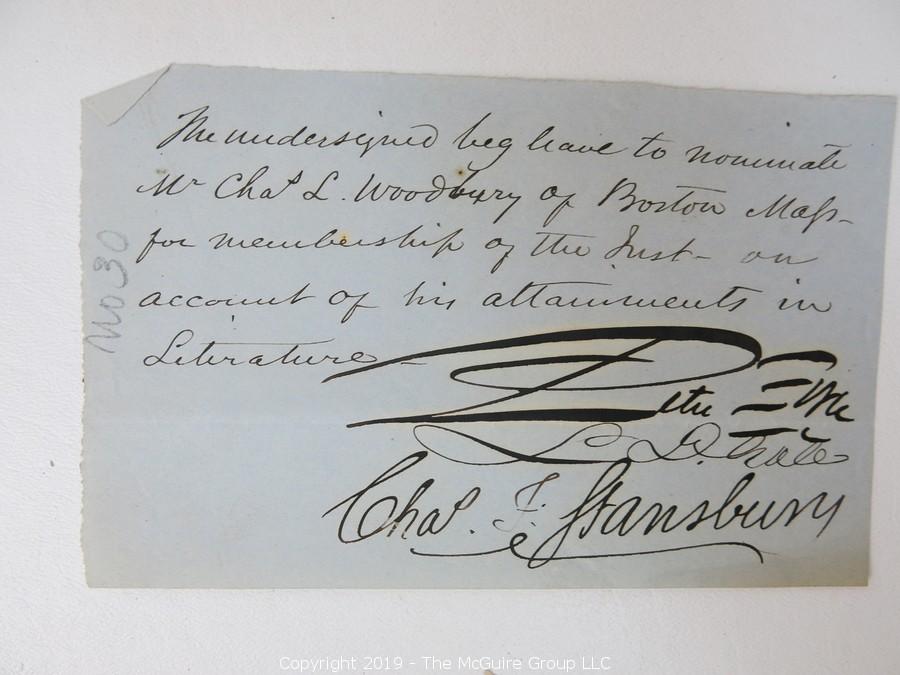 The undersigned beg leave to nominate
Mr Chas L. Woodbury of Boston Mass-
for membership of the Inst- on
account of his attainments in
Literature -
L. D. Gale
Chas. F. Stansbury
No 30
Copyright 2019 - The McGuire Group LLC